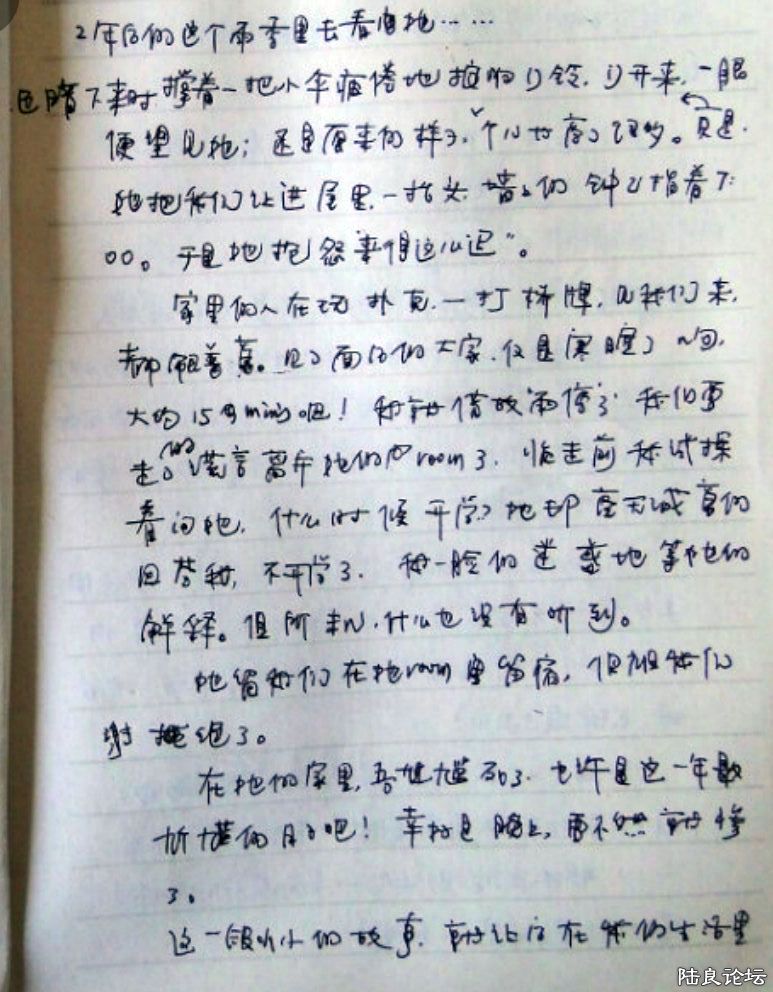 2年后的这个雨季里去看她……
色暗下来时撑着一把小伞疲倦地按响门铃.门开来,一眼
便望见她；还是原来的样子,个儿好高了许多。只是.
她把我们让进屋里.一抬头.墙上的钟已指着7:
00。于是她抱怨"来得这么迟"。
家里的人在玩扑克.一打桥牌,见我们来,
都。见了面后的大家.仅是寒暄了几句,
大约15分mins吧！借故"雨停了"我们要
走的谎言离开她的room了.临走前我试探
着问她,什么时候开学？她却的
回答我,不开学了.我一脸的迷惑地等她的
解释。但,什么也没有听到。
她留我们在她room里留宿,但被我们
拒绝了。
在她的家里,尴尬死了.也许是这一年最
尴尬的日子吧！幸好是晚上,要不然就惨
了。
这一段小小的故事.就让它在我的生活里
陆良论坛